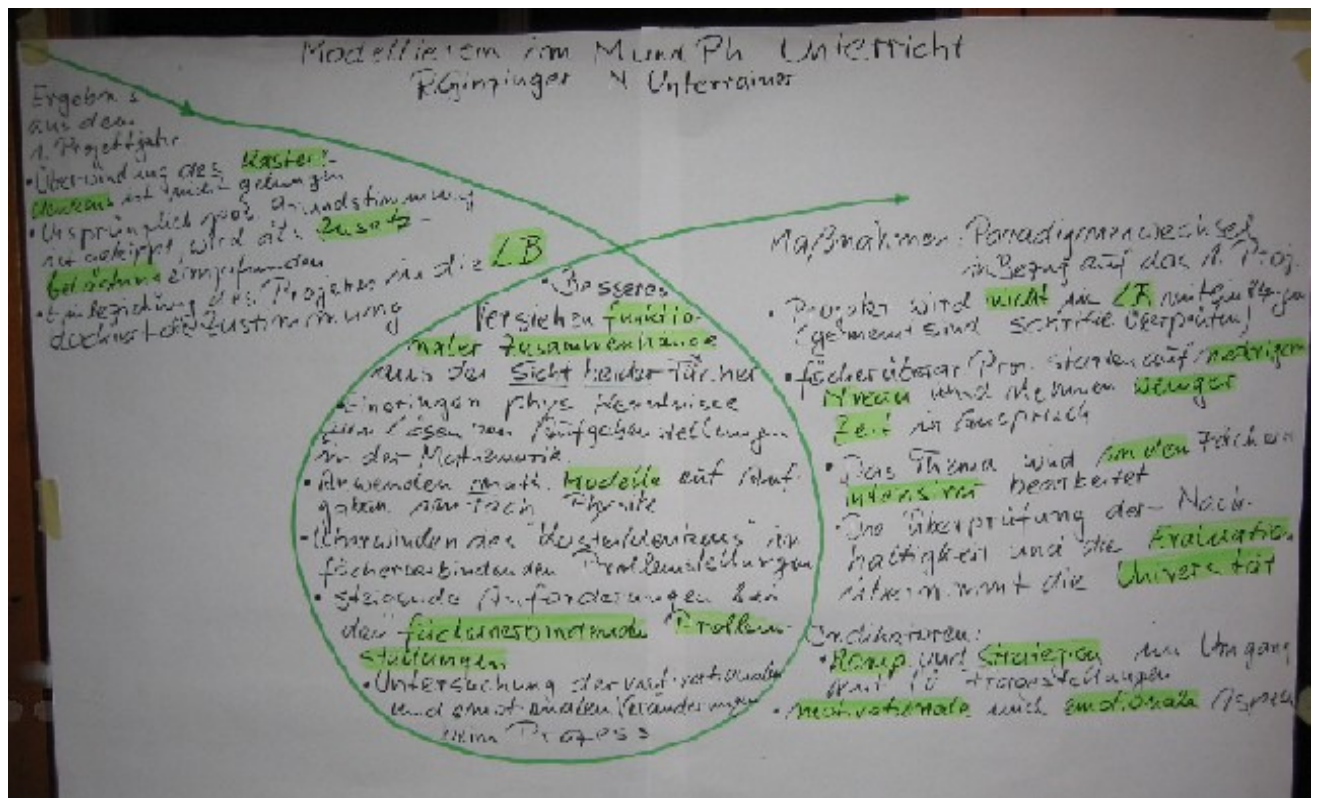 Modellieren im M und Ph Unterricht
R. Gimpinger N Unterrainer
Ergebnis
aus dem
1. Projektjahr
• Überwindung des Kasterl-
denkens ist nicht gelungen
• Ursprünglich Grundstimmung
ist gekippt, wird als Zusatz-
belastung empfunden
• Einbeziehung des Projektes in die LB
Zustimmung
• Besseres
Verstehen funktio-
naler Zusammenhänge
aus der Sicht beider Fächer
• Einbringen phys Kenntnisse
zum Lösen von Aufgabenstellungen
in der Mathematik.
• Anwenden math. Modelle auf Auf-
gaben im Fach Physik
• Überwinden des "Kasterldenkens" in
fächerverbindenden Problemstellungen
• steigende Anforderungen bei
den fächerverbindenden Problem-
stellungen
• Untersuchung der
und emotionalen Veränderungen
beim Prozess
Maßnahmen: Paradigmenwechsel
in Bezug auf das 1. Proj.
• Projekt wird nicht in LB
(gemeint sind schriftl. Überprüfun)
• fächerübergr. Pro. starten auf niedrigem
Niveau und nehmen weniger
Zeit in Anspruch
• Das Thema wird in den Fächern
intensiv bearbeitet
• Die Überprüfung der Nach-
haltigkeit und die Evaluation
übernimmt die Universität
Indikatoren:
• Komp und Strategien im Umgang
mit fü Fragestellungen
• motivationale und emotionale Aspek